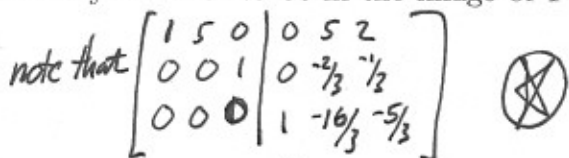 note that
1 5 0 | 0 5 2
0 0 1 | 0 -2/3 -1/3
0 0 0 | 1 -16/3 -5/3